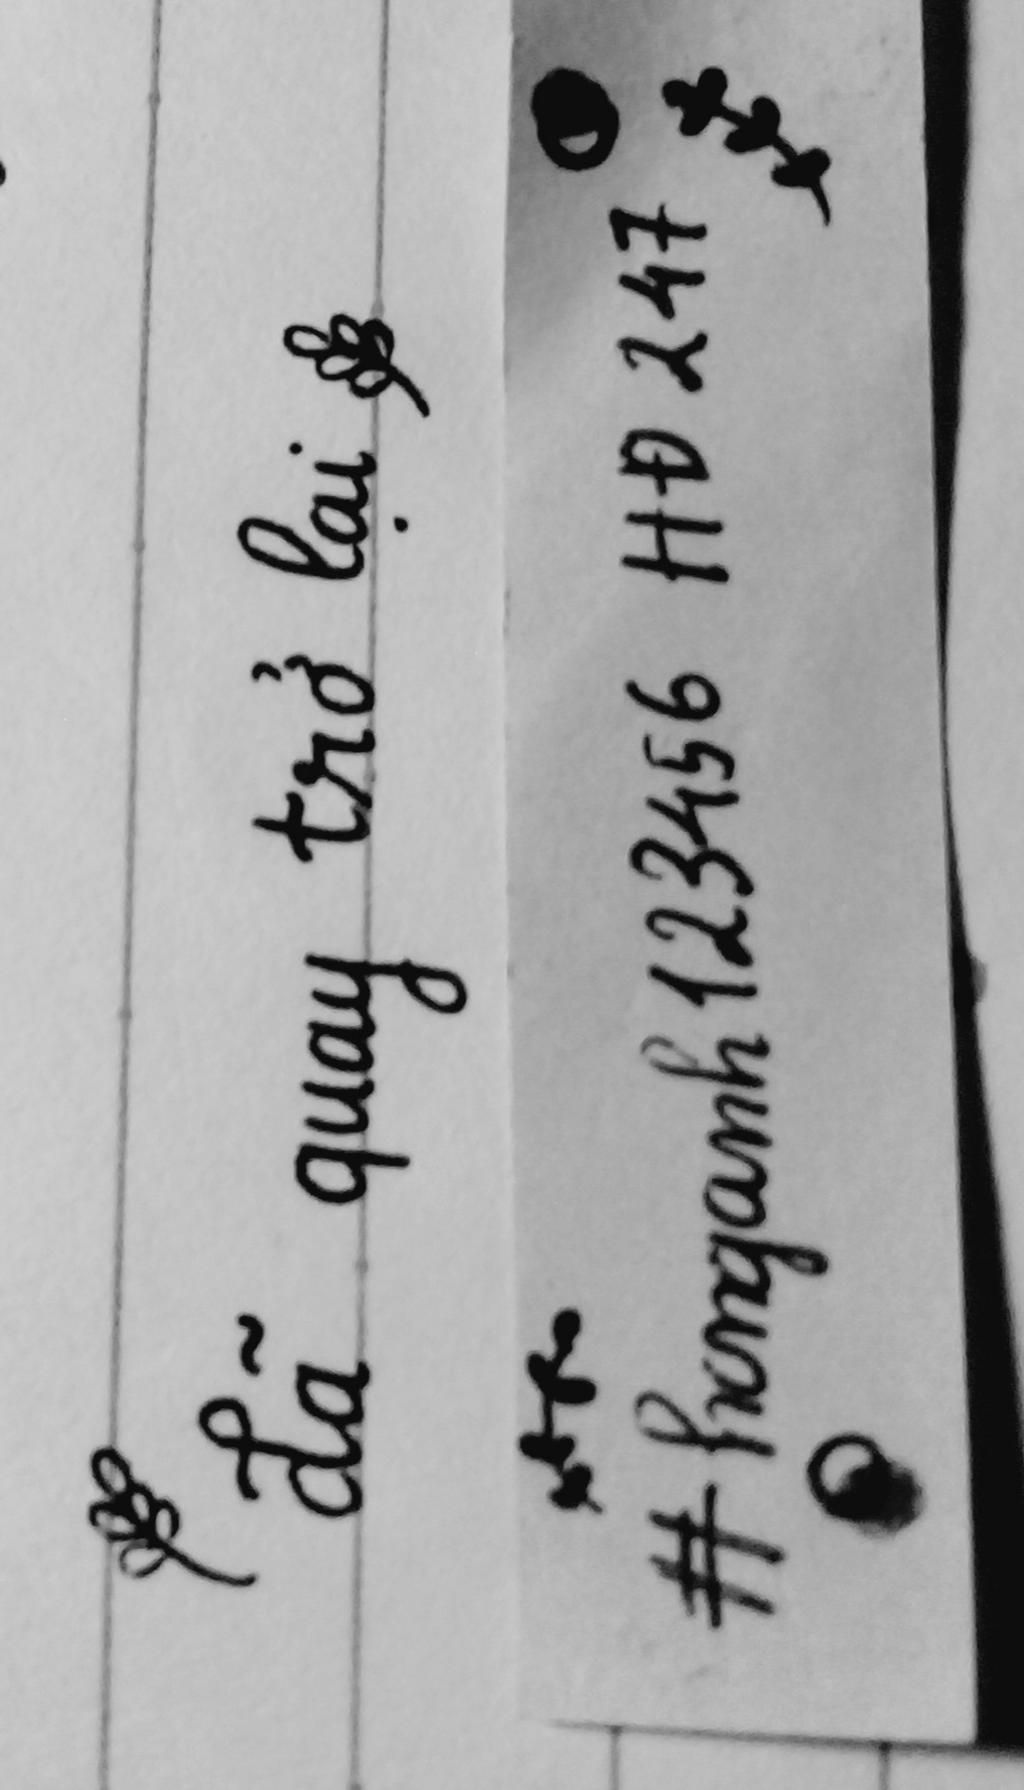 đã quay trở lại
# honganh123456 HĐ 247